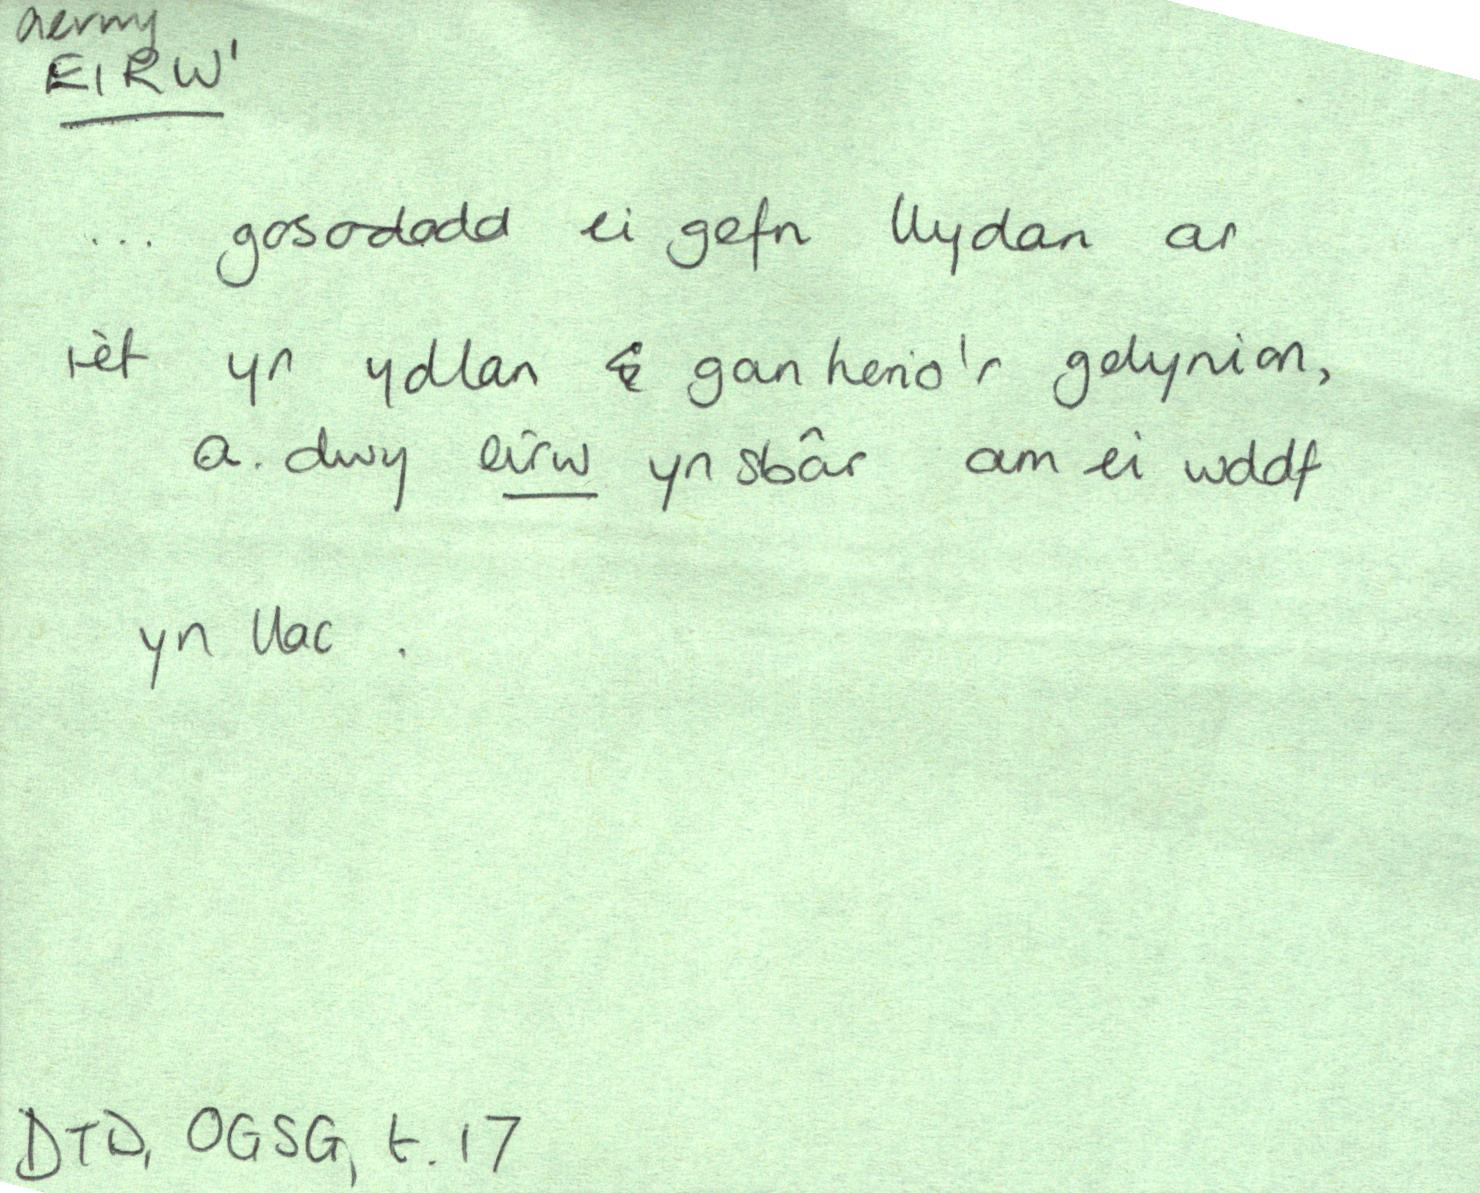 aerwy
EIRW'
... gosododd ei gefn llydan ar
ièt yr ydlan gan herio'r gelynion,
a. dwy eirw yn sbâr am ei wddf
yn llac .
DTD, OGSG, t. 17